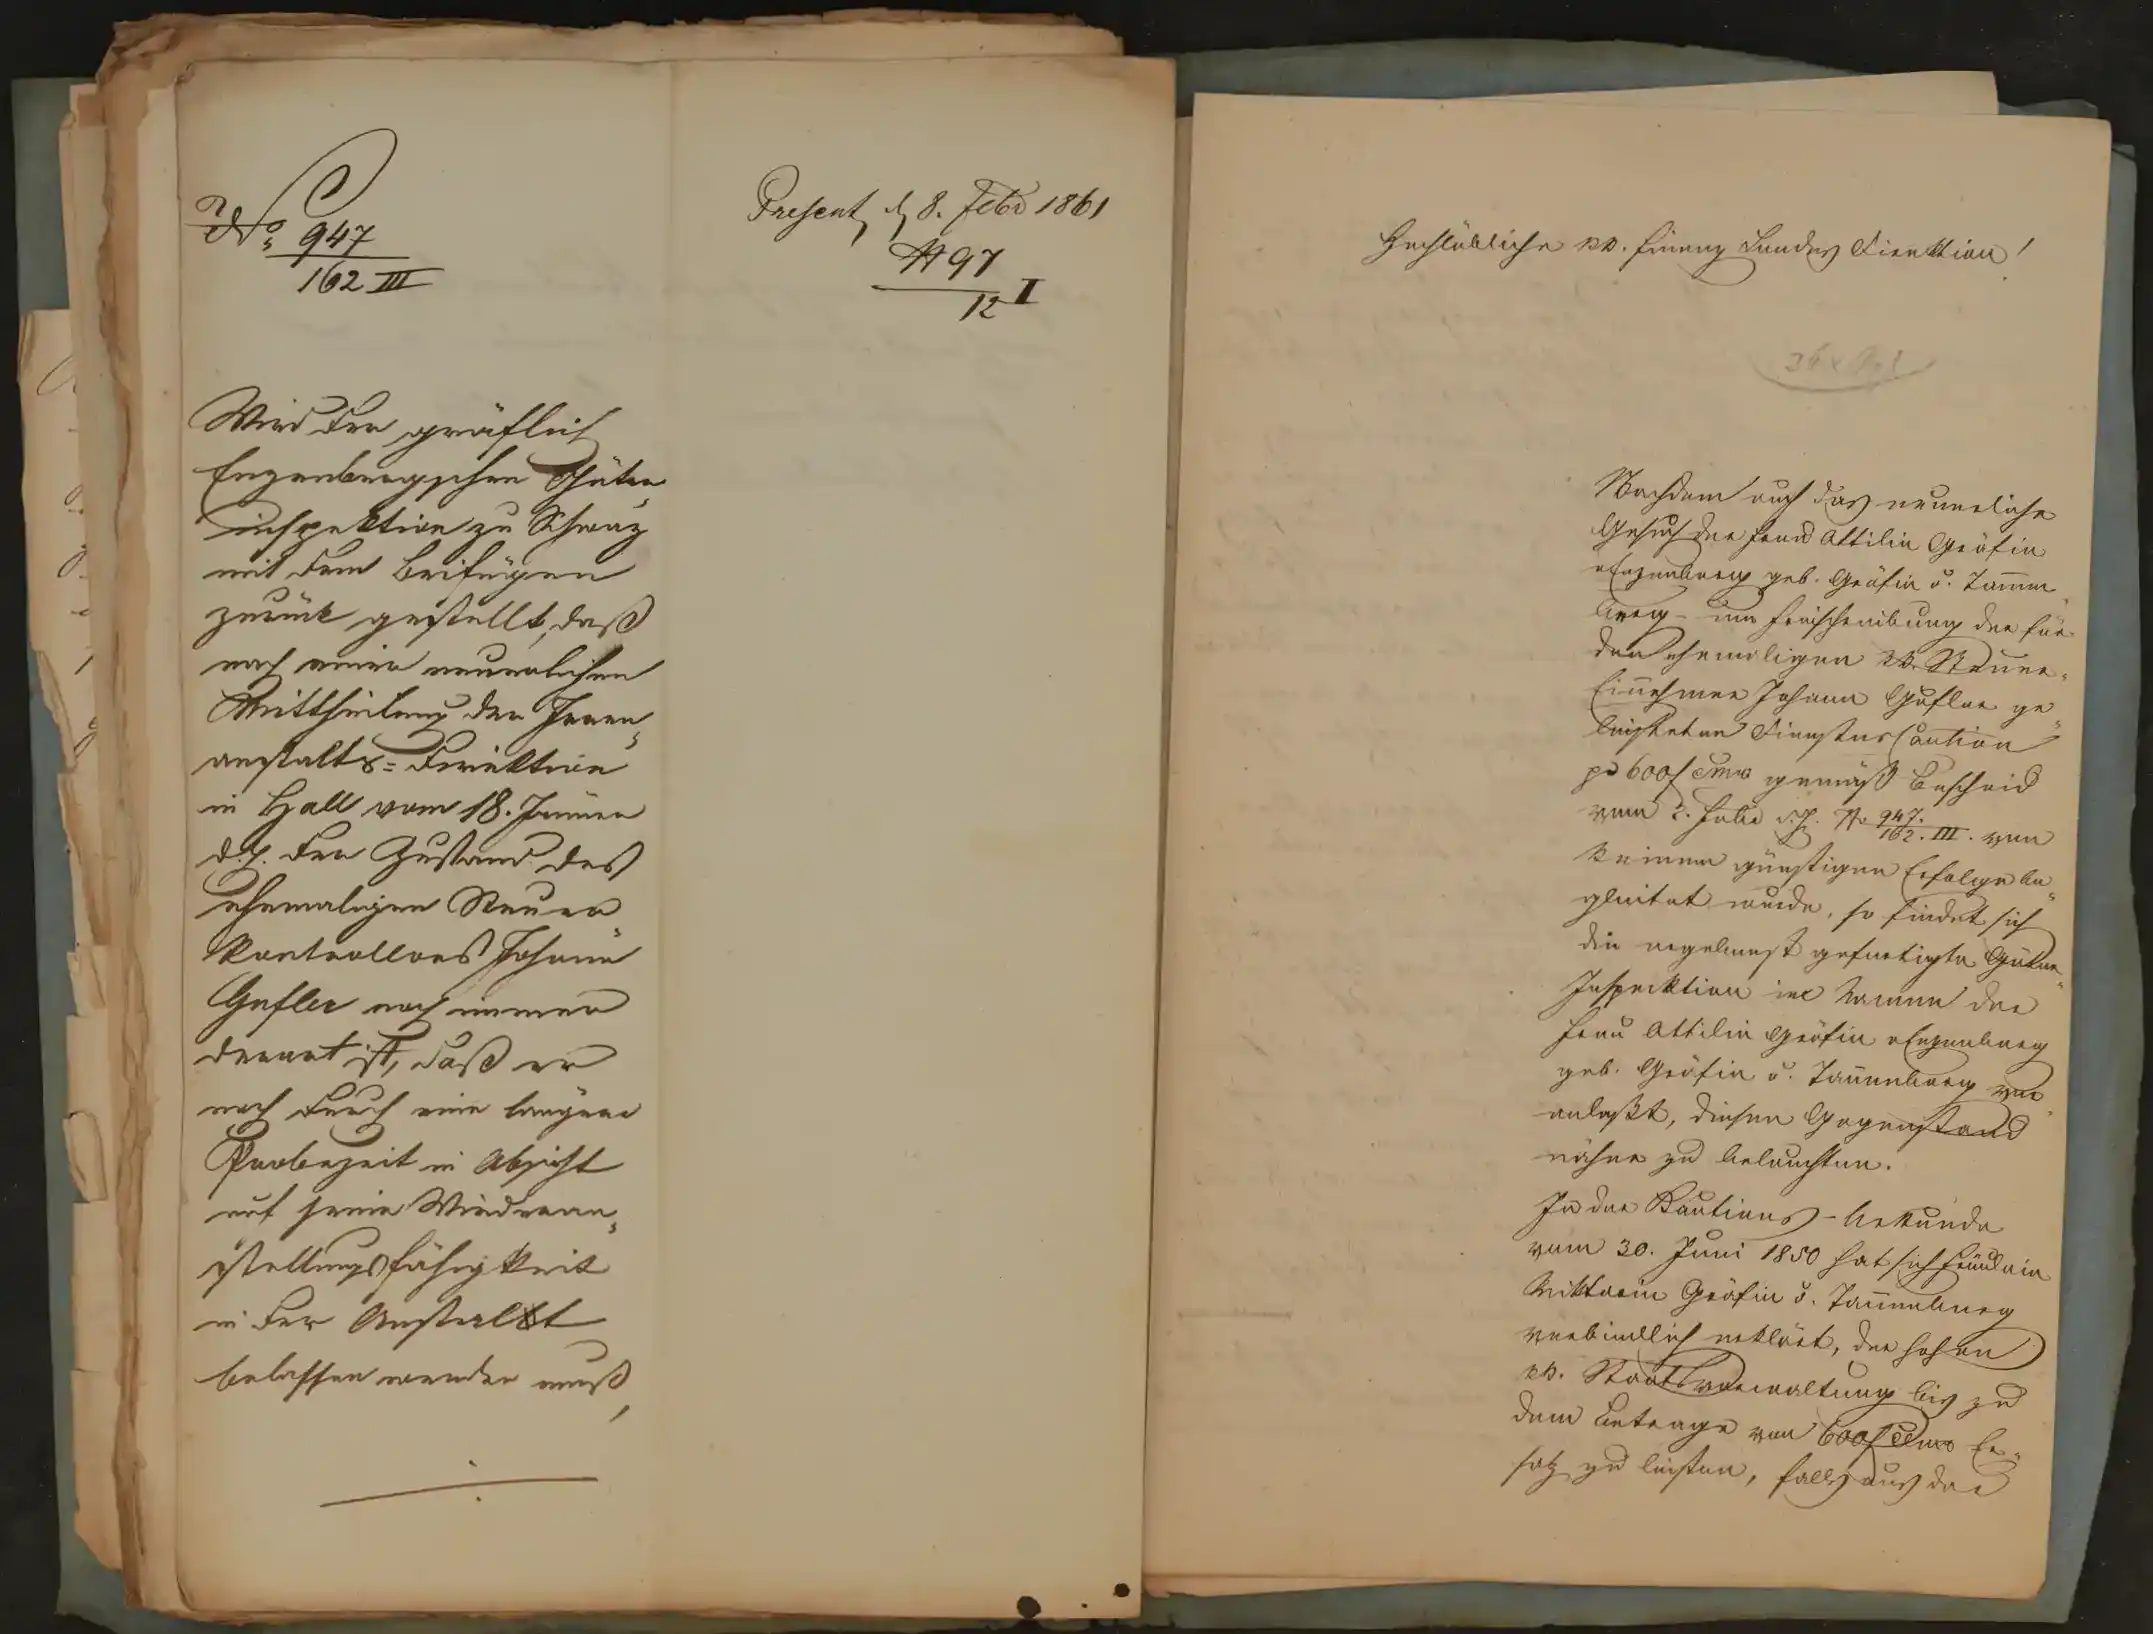 No. 947
162 III
Wird der gräflich
Enzenbergschen Güter
inspektion zu Schwaz
mit dem Beifügen
zurück gestellt, daß
nach einer neuerlichen
Mittheilung der Irren
anstalts-Direktion
in Hall vom 18. Jänner
d. J. der Zustand des
ehemaligen Steuer
Kontrollors Johann
Gufler noch immer
derart ist, daß er
noch durch eine längere
Probezeit in Absicht
auf seine Wiederan
stellungsfähigkeit
in der Anstalt
belassen werden muß,
Present 8. Feb 1861
N 97
12 I
Hochlöbliche kk. Finanz Landes Direktion!
Nachdem auch das neuerliche
Gesuch der Frau Ottilia Gräfin
Enzenberg geb. Gräfin v. Tannen
berg um Freischreibung der für
den ehemaligen kk. Steuer-
Einnehmer Johann Gufler ge
leisteten Dienstes Caution
pr 600 f CMze gemäß Bescheid
vom 2. d. J. No 947.
162. III. von
keinem günstigen Erfolge be
gleitet wurde, so findet sich
die ergebenst gefertigte Güter
Inspektion im Namen der
Frau Ottilia Gräfin Enzenberg
geb. Gräfin v. Tannenberg ver
anlaßt, diesen Gegenstand
näher zu beleuchten.
In der Kautions-Urkunde
vom 30. Juni 1850 hat sich Fräulein
Viktoria Gräfin v. Tannenberg
verbindlich erklärt, der hohen
kk. Staatsverwaltung bis zu
dem Betrage von 600 f CMze Er-
satz zu leisten, falls aus der